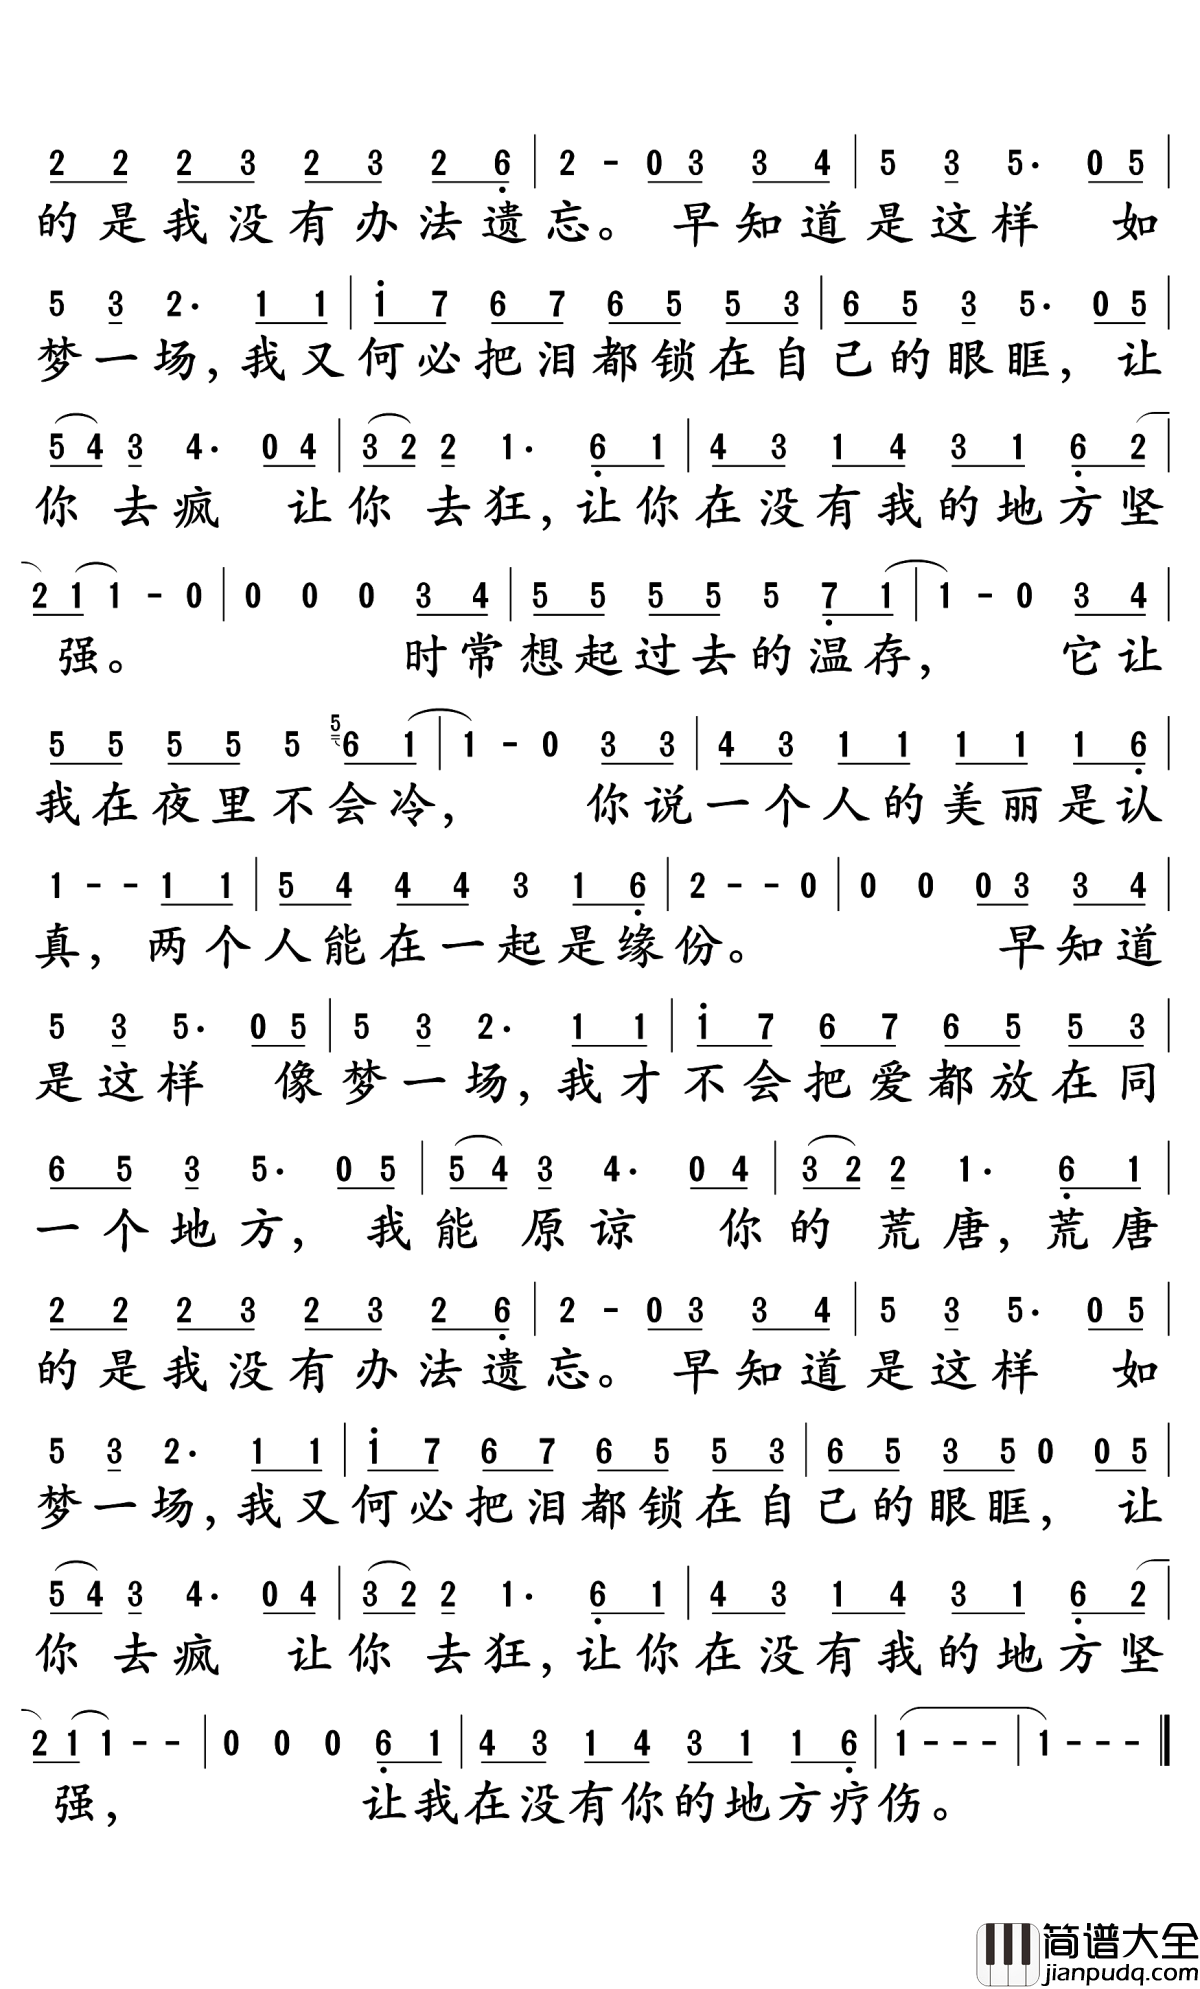 2 2 2 3 2 3 2 6 | 2 - 0 3 3 4 | 5 3 5. 0 5 |
的是我没有办法遗忘。 早知道是这样 如
5 3 2. 1 1 | 1 7 6 7 6 5 5 3 | 6 5 3 5. 0 5 |
梦一场,我又何必把泪都锁在自己的眼眶, 让
5 4 3 4. 0 4 | 3 2 2 1. 6 1 | 4 3 1 4 3 1 6 2 |
你 去疯 让你 去狂,让你在没有我的地方坚
2 1 1 - 0 | 0 0 0 3 4 | 5 5 5 5 5 7 1 | 1 - 0 3 4 |
强。 时常想起过去的温存, 它让
5 5 5 5 5 5 6 1 | 1 - 0 3 3 | 4 3 1 1 1 1 1 6 |
我在夜里不会冷, 你说一个人的美丽是认
1 - - 1 1 | 5 4 4 4 3 1 6 | 2 - - 0 | 0 0 0 3 3 4 |
真, 两个人能在一起是缘份。 早知道
5 3 5. 0 5 | 5 3 2. 1 1 | 1 7 6 7 6 5 5 3 |
是这样 像梦一场,我才不会把爱都放在同
6 5 3 5. 0 5 | 5 4 3 4. 0 4 | 3 2 2 1. 6 1 |
一个地方, 我能 原谅 你的 荒唐,荒唐
2 2 2 3 2 3 2 6 | 2 - 0 3 3 4 | 5 3 5. 0 5 |
的是我没有办法遗忘。 早知道是这样 如
5 3 2. 1 1 | 1 7 6 7 6 5 5 3 | 6 5 3 5 0 0 5 |
梦一场,我又何必把泪都锁在自己的眼眶, 让
5 4 3 4. 0 4 | 3 2 2 1. 6 1 | 4 3 1 4 3 1 6 2 |
你 去疯 让你 去狂,让你在没有我的地方坚
2 1 1 - - | 0 0 0 6 1 | 4 3 1 4 3 1 1 6 | 1 - - - | 1 - - - ‖
强, 让我在没有你的地方疗伤。
简谱大全
jianpudq.com